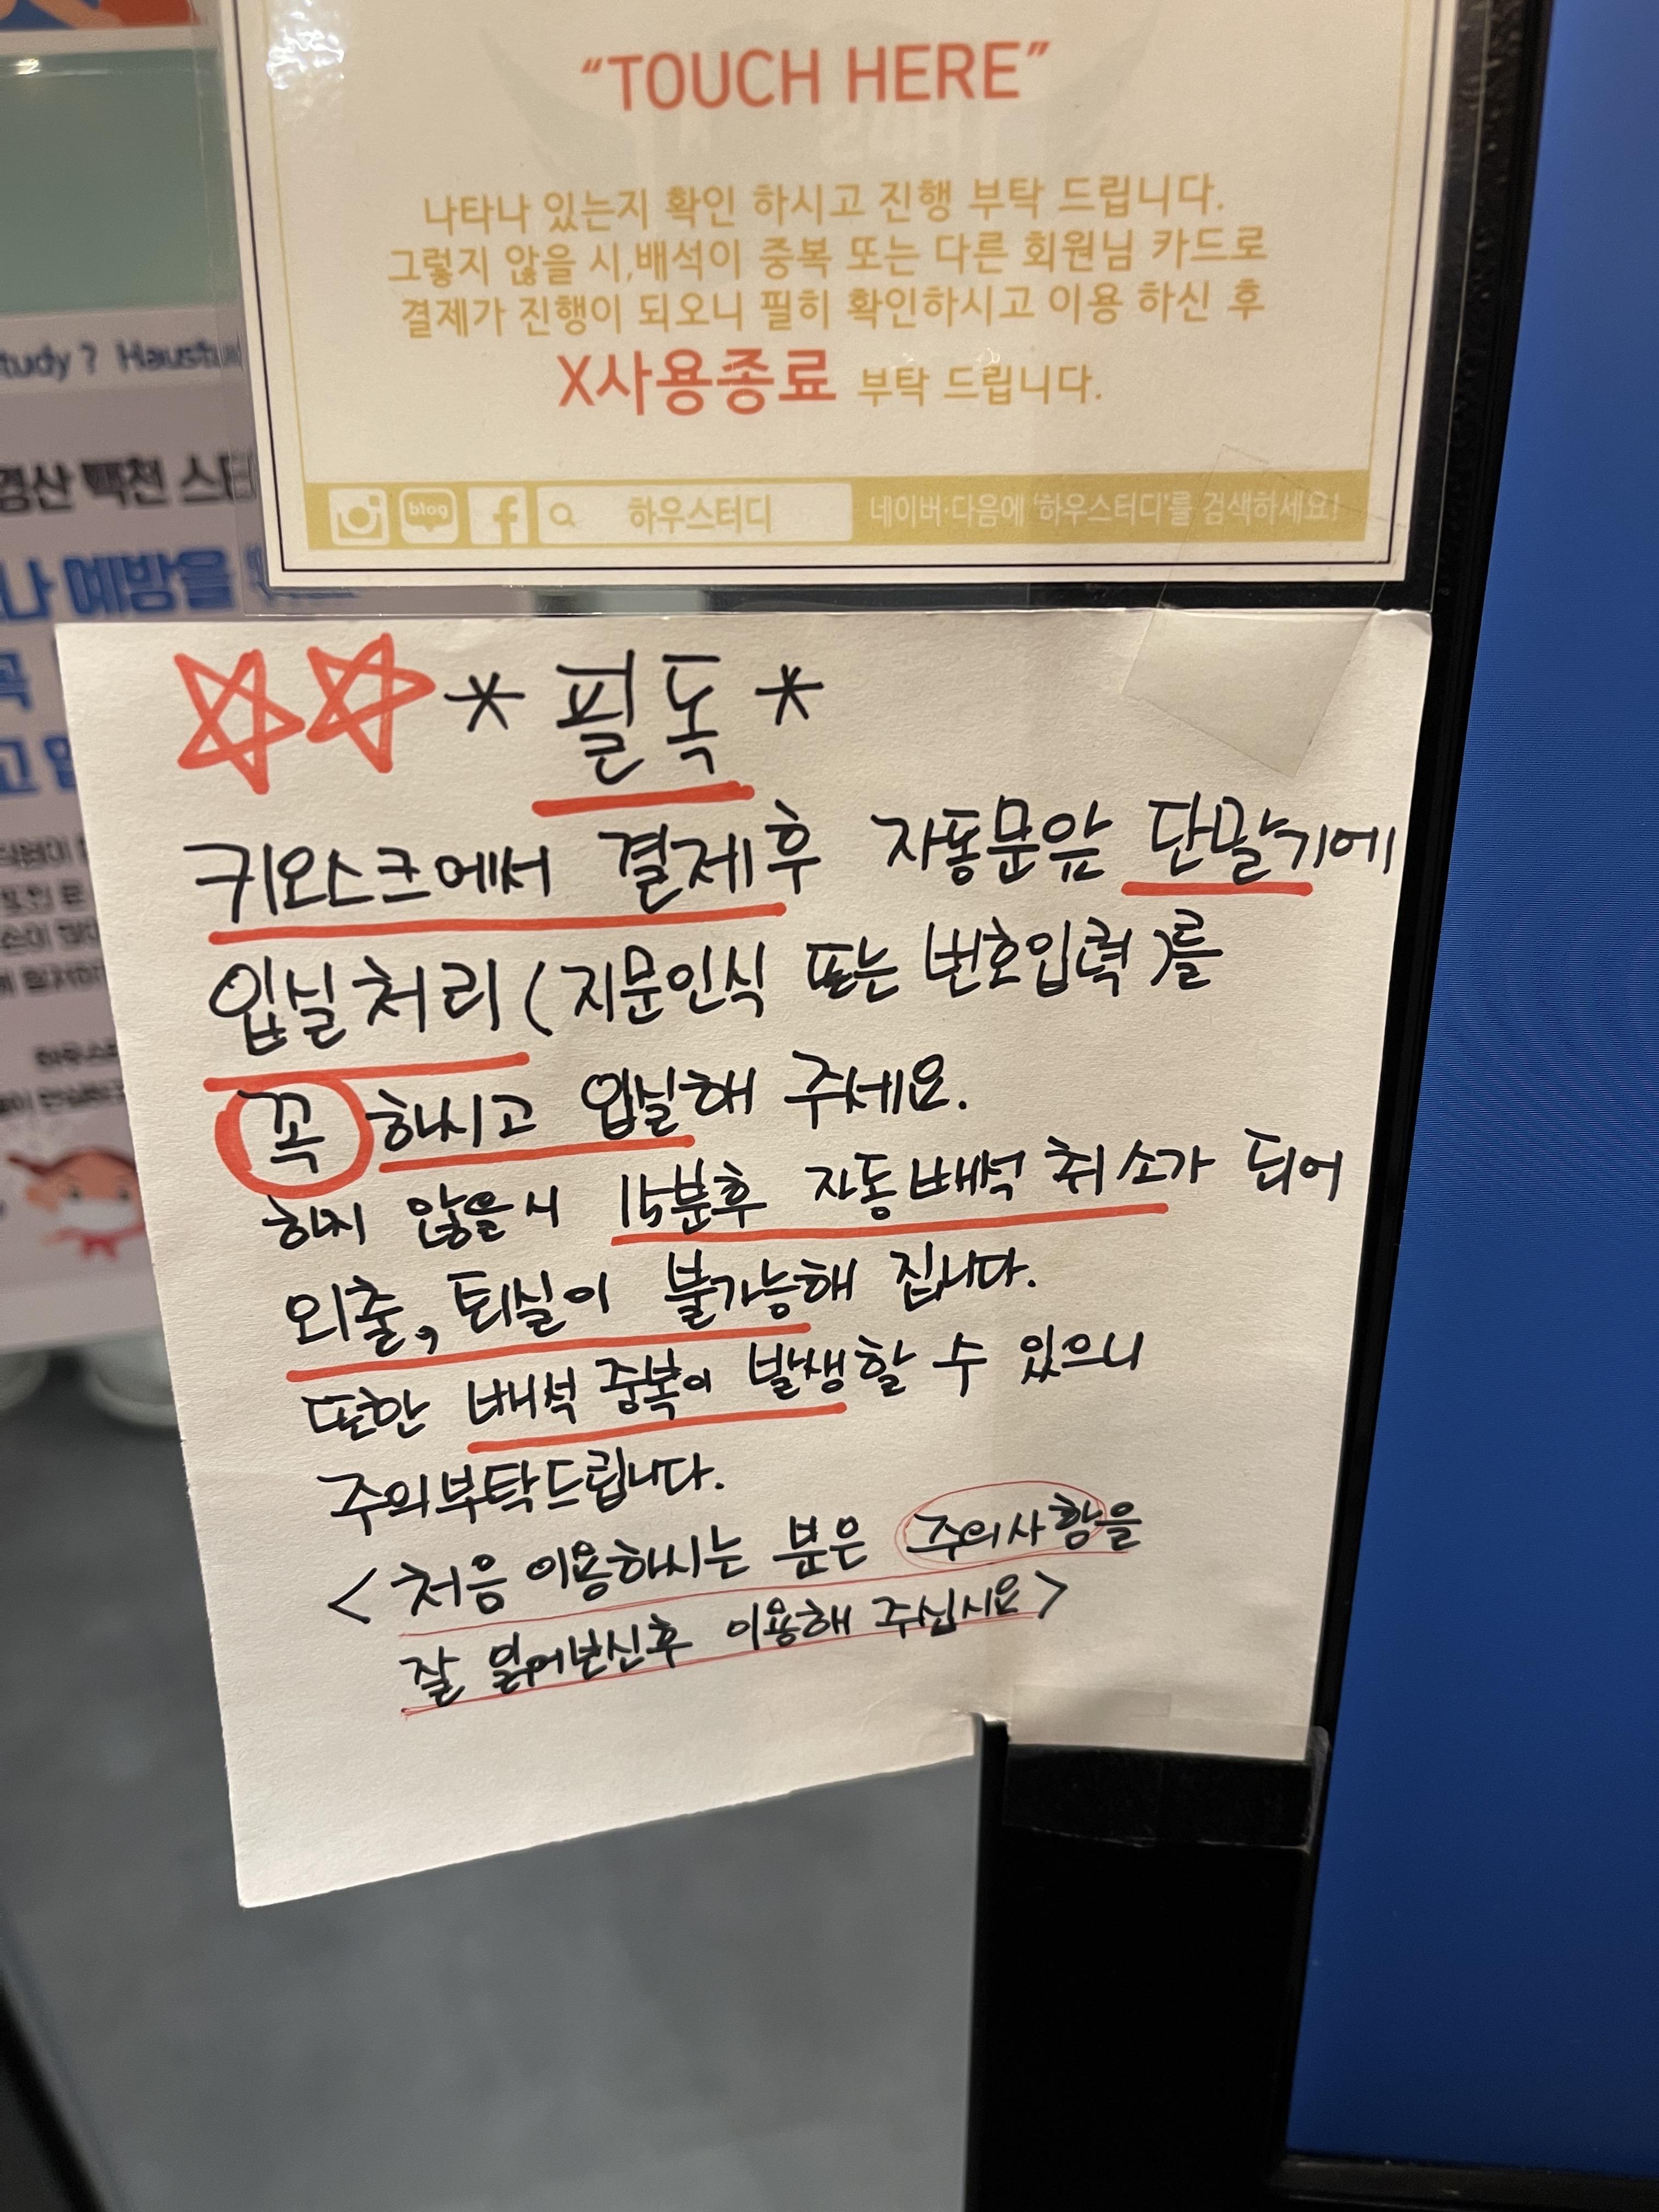 “TOUCH HERE”
나타나 있는지 확인 하시고 진행 부탁 드립니다.
그렇지 않을 시,배석이 중복 또는 다른 회원님 카드로
결제가 진행이 되오니 필히 확인하시고 이용 하신 후
X사용종료 부탁 드립니다.
blog 하우스터디 네이버·다음에 '하우스터디'를 검색하세요!
tudy ? Haustu
경산 백천 스터
나 예방을
꼭
고
하우스
* 필독 *
키오스크에서 결제후 자동문앞 단말기에
입실처리(지문인식 또는 번호입력)를
꼭 하시고 입실해 주세요.
하지 않을시 15분후 자동배석 취소가 되어
외출, 퇴실이 불가능해 집니다.
또한 배석 중복이 발생할 수 있으니
주의부탁드립니다.
<처음 이용하시는 분은 주의사항을
잘 읽어보신후 이용해 주십시요>